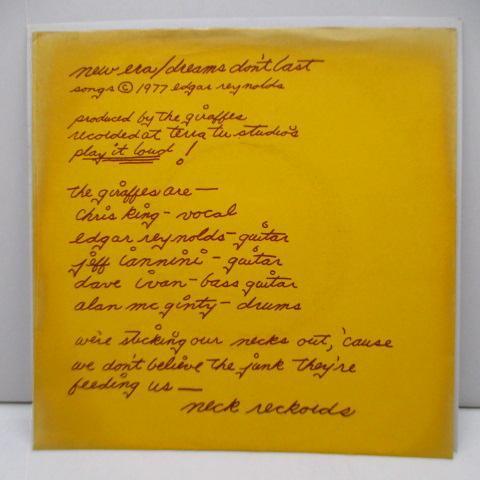 new era/dreams don't last
songs © 1977 edgar reynolds
produced by the giraffes
recorded at terra tu studios
play it loud!
the giraffes are —
chris king - vocal
edgar reynolds - guitar
jeff iannini - guitar
dave ivan - bass guitar
alan mc ginty - drums
we're sticking our necks out, 'cause
we don't believe the junk they're
feeding us —
neck reckords